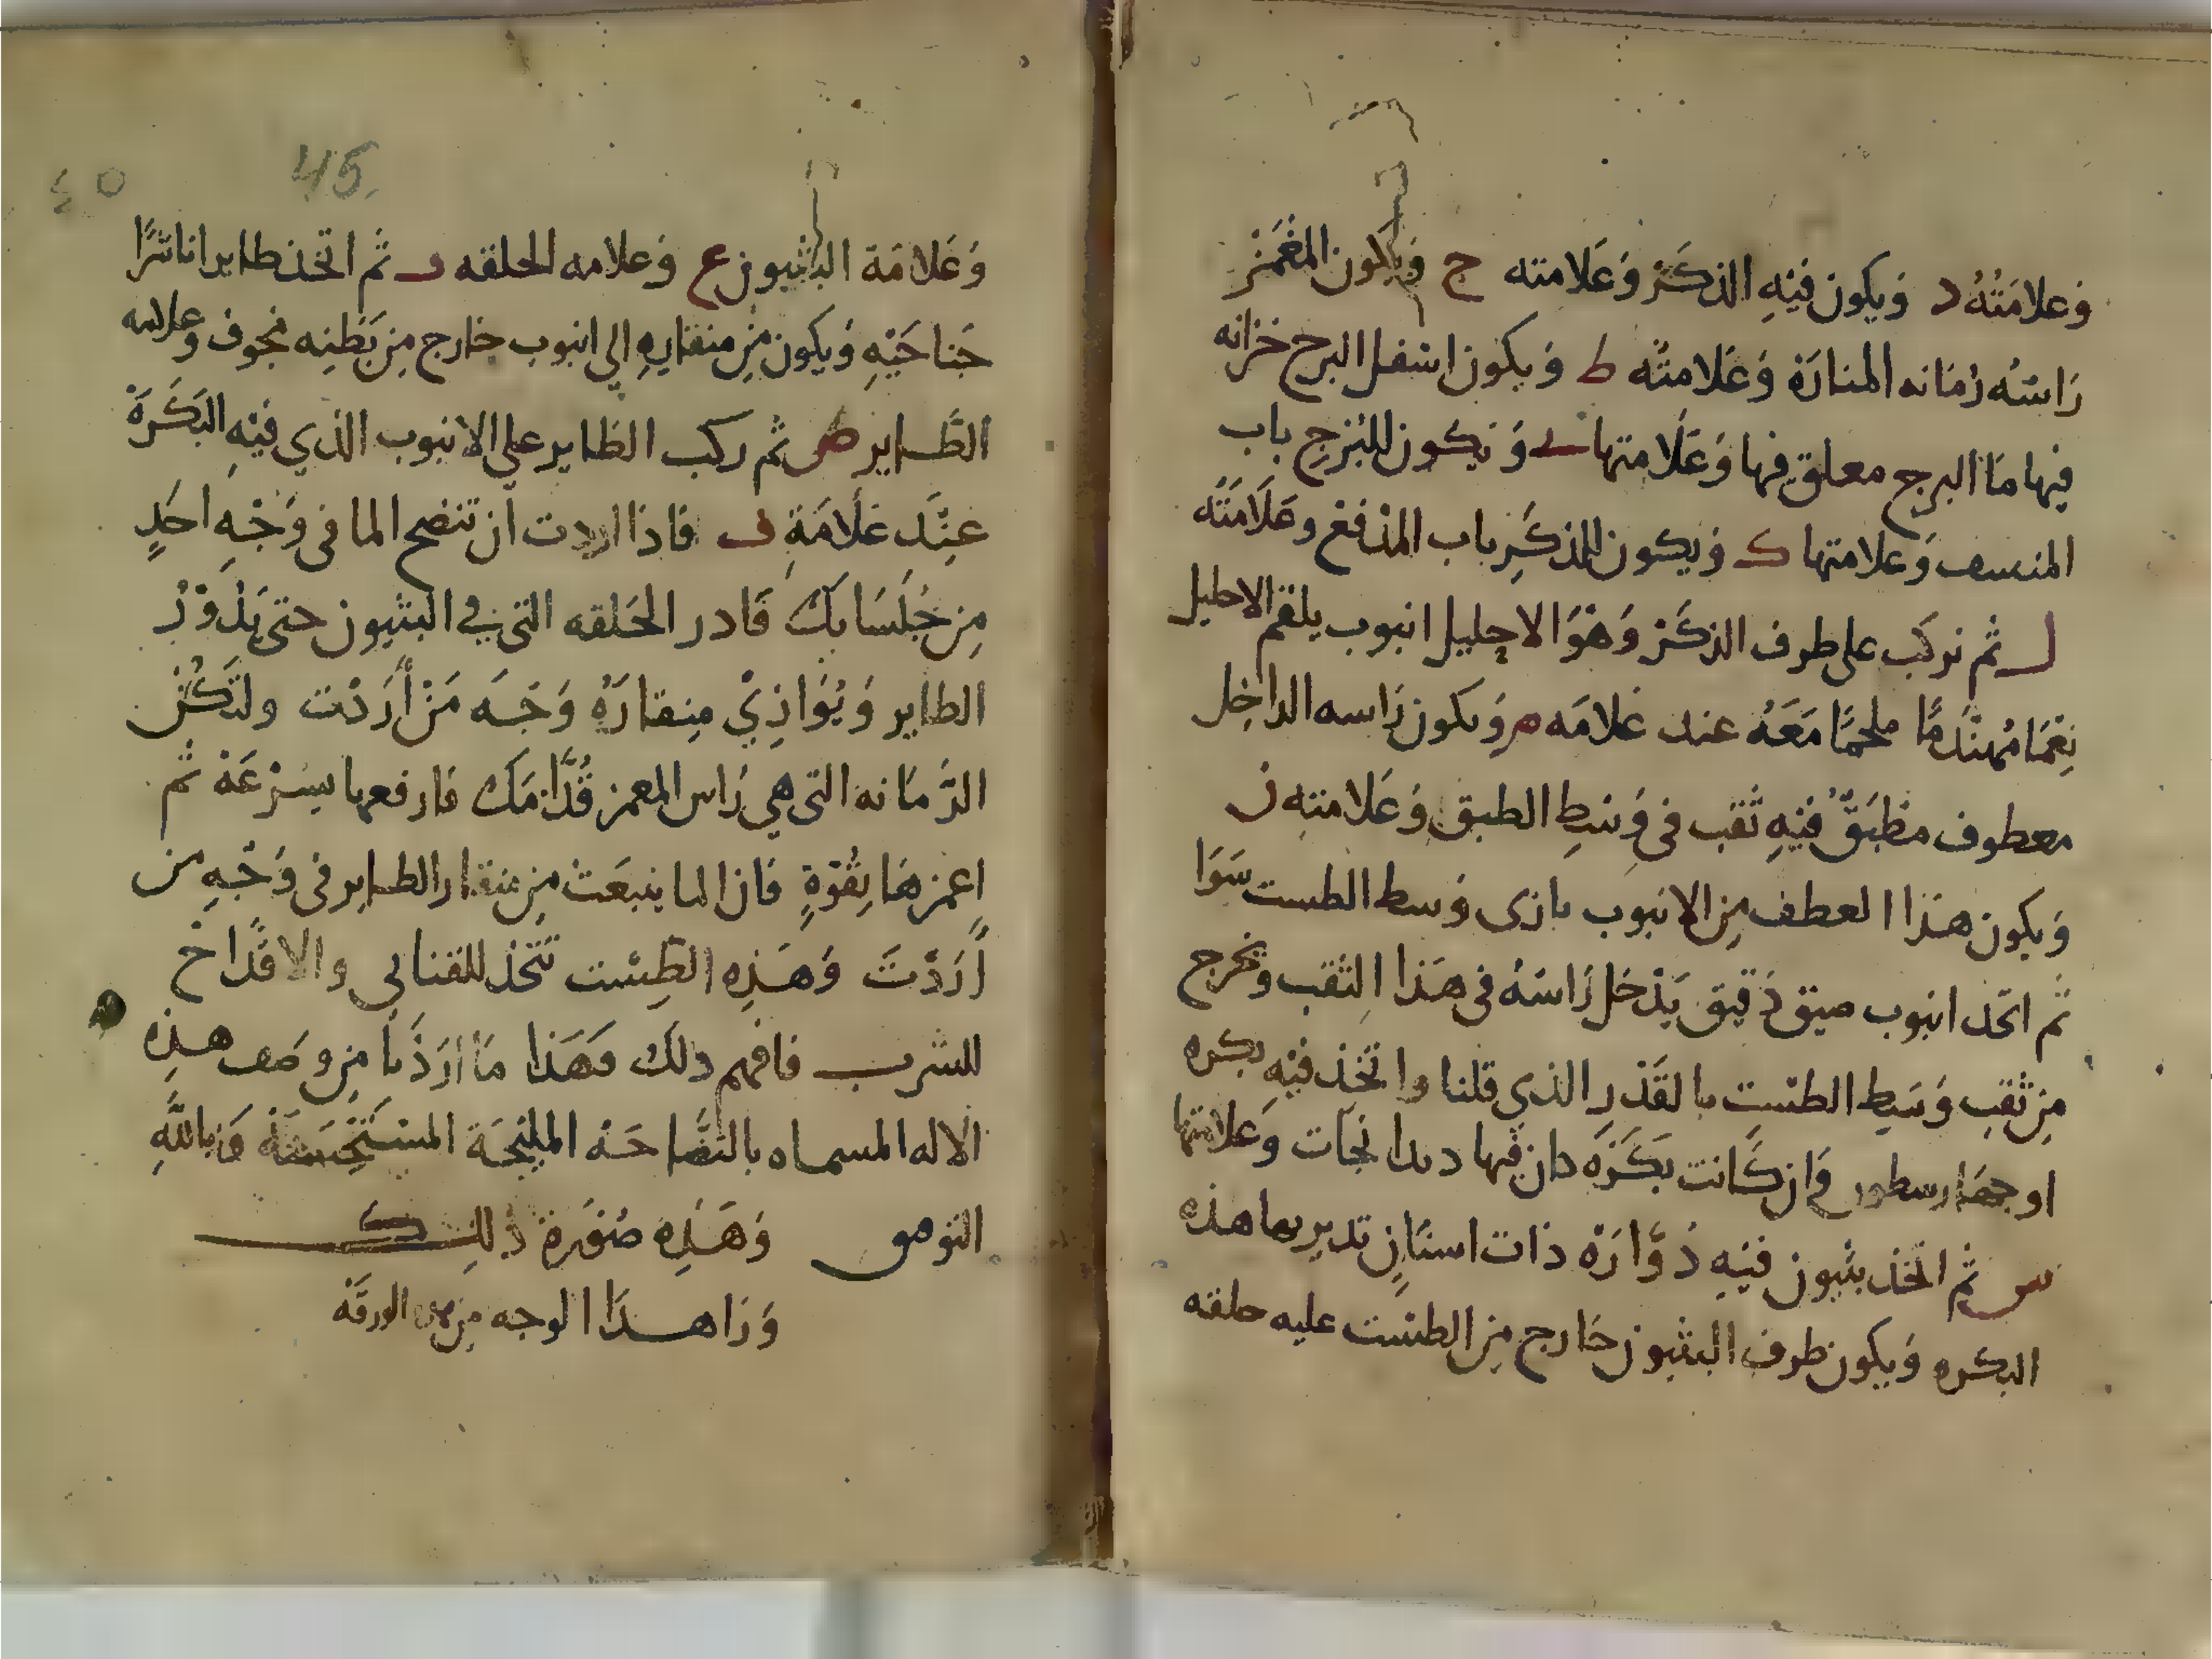 وَعلامَتُهُ د وَيكون فيْهِ الذكَرْ وَعَلامته ح وَيكون المغْمَزْ
رَاسُه رُمَانه المنارَة وَعَلامتُه ط وَيكون اسْفل البرج خزانه
فيها مَا البرج معلق فيها وَعَلَامتها ى وَيكون للبُرْجِ باب
المنسف وَعلامتها ك وَيكون للذكَرِ باب المدْفعْ وعَلَامَتُه
ل ثم نركب على طرف الذكَرْ وَهْوَ الاحليل انبوب يلقم الاحليل
نِعْمًا مُهنْدَمًا ملحمًا مَعَهُ عند عَلامَه م وَيكون رَاسه الداخِل
معطوف مطبَقٌ فيْهِ ثقب فى وَسَطِ الطبق وَعَلامتهِ ن
وَيكون هذا العطف مِن الانبوب بازى وَسط الطست سَوَا
ثم اتخذ انبوب ضيق دَقيق يَدْخل رَاسُه فى هَذا الثقب وتخرج
مِن ثقب وَسَطِ الطسْت بالقَدْرِ الذي قلنا واتخِذ فيْهِ بكره
او جصَارسطور وَان كَانت بَكَرَه دان فيها دندانجَات وَعَلامتها
س ثم اتخذ بثيون فيْهِ دُوَّارَة ذات اسنَانٍ تدير بها هذه
البكره وَيكون طرف البثيون خارج مِن الطسْت عليه حلقه
45
٤٥
وَعَلامَة البثيون ع وَعلامه الحلقه ف ثم اتخذ طايرا ناشرًا
جَناحَيْهِ وَيكون مِن منقارهِ الي انبوب خارج مِن بَطنِه مجوف وعلامه
الطَّاير ص ثم ركب الطاير علي الانبوب الذي فيْهِ البَكَرَة
عِنْدَ عَلَامَةِ ف فاذا اردت ان تنضح الما فى وَجْهِ احَدٍ
مِن جُلَسَايكَ فَادر الحَلقه التي في البثيون حتى يَدُوْرُ
الطاير وَيُوَاذِيْ مِنقارَهُ وَجَه مَنْ أَرَدْت ولتَكُنْ
الرُّمَانه التى هي رَاس المغمز قُدَّامَك فارفعها بسِرْعَة ثم
اغمزهَا بِقُوّةٍ فان الما ينبعَث مِن منقار الطاير فى وَجْهِ من
أَرَدْتَ وَهَذِه الطِسْت تتخذ للقنانى والاقدَاح
للشرب فافهم ذلك فهَذا مَا أرَدْنا مِن وصف هذِه
الاله المسماه بالنضَّاحَة المليْحَة المستَحْسَنَة وَبِاللَّهِ
التوفيق وَهَذِه صُوْرة ذلِك
وَرَا هذا الوجه مِن هذه الورقَه